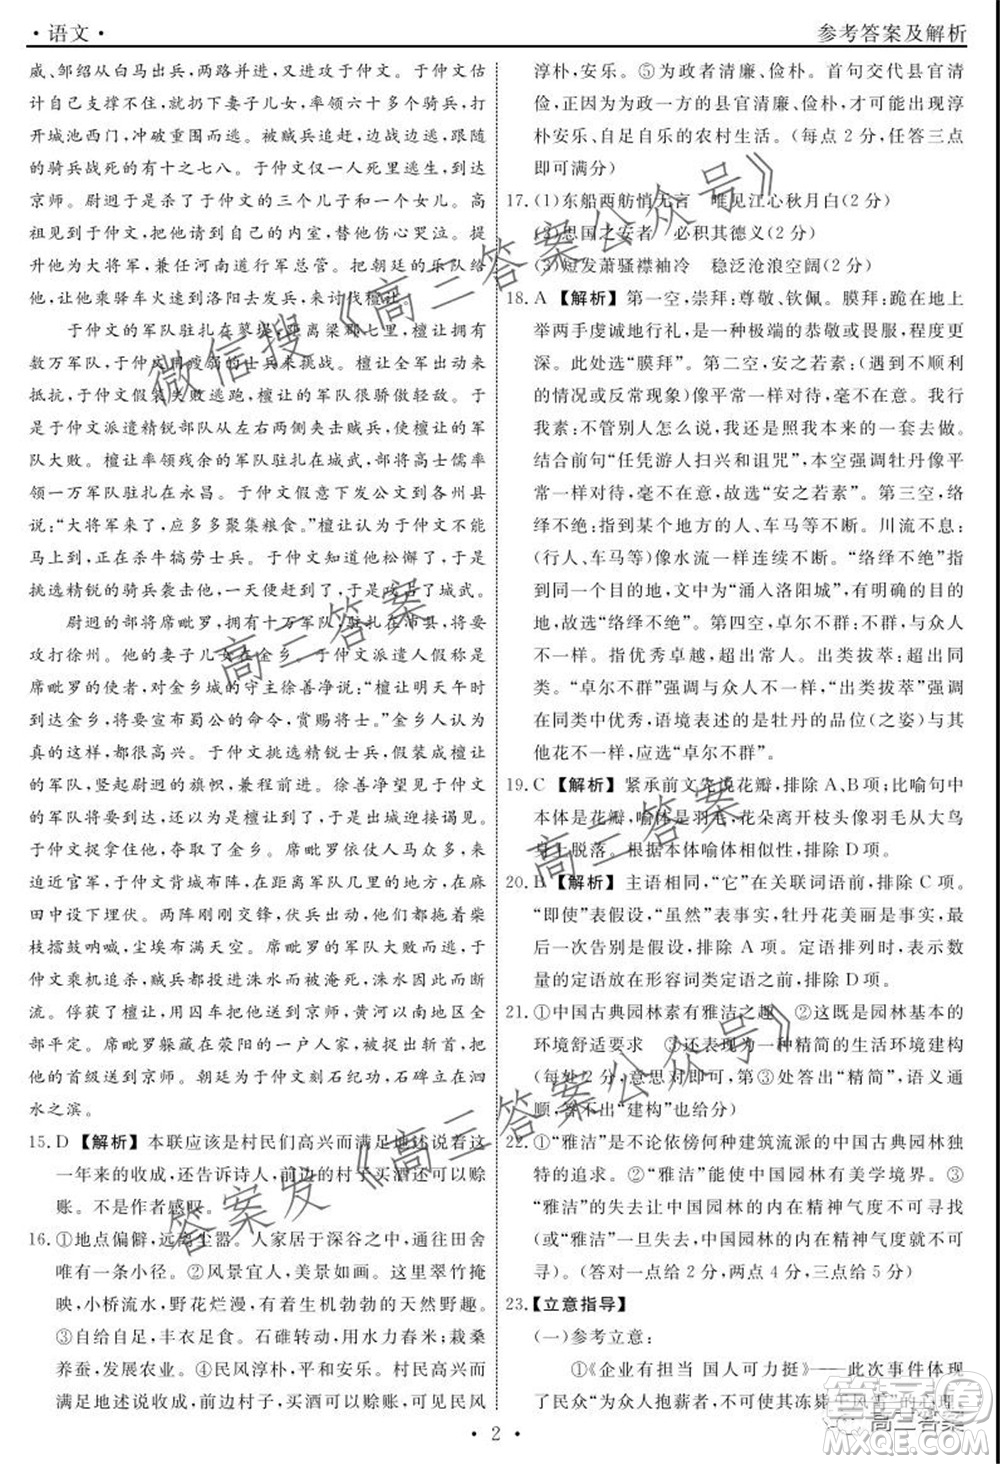 ·语文·
参考答案及解析
戚、邹绍从白马出兵，两路并进，又进攻于仲文。于仲文估
计自己支撑不住，就丢下妻子儿女，率领六十多个骑兵，打
开城池西门，冲破重围而逃。被贼兵追赶，边战边走，率领
的骑兵战死的有十之七八。于仲文仅仅得以逃生，到达
京师。尉迥于是杀了他的三个儿子和一个女儿。高
祖见到于仲文，带他到自己的内室，为他伤心哭泣。提
升他为大将军，兼任河南道行军总管。把朝廷的乐队给
他，让他乘驿车火速到洛阳去发兵，以讨伐檀让。
于仲文的军队驻扎在蓼堤，距离梁郡七里，檀让拥有
数万军队，于仲文用瘦弱的士兵来挑战。檀让用全部军
队来抵抗，于仲文假装失败逃跑，檀让的军队很骄傲轻敌。于
是于仲文派遣精锐部队从左右两侧夹击贼兵，檀让的军
队大败。檀让率领残余的军队驻扎在城武，部将高士儒率
领一万军队驻扎在永昌。于仲文假意下发公文到各州县
说：“大将军将要来了，应多多聚集粮食。”檀让认为于仲文
未能马上到来，正在杀牛犒劳士兵。于仲文知他松懈了，于是
挑选精锐的骑兵袭击他，一天就到了，于是攻占了城武。
尉迥的部将席毗罗，拥有十万军队，驻扎在沛县，将要
攻打徐州。他的妻子儿女在金乡。于仲文派遣人假称是
席毗罗的使者，对金乡城的守主徐善净说：“檀让明天午时
到达金乡，将要宣布蜀公的命令，赏赐将士。”金乡人认为
真的这样，都很高兴。于仲文挑选精锐士兵，假装成檀让
的军队，竖起尉迥的旗帜，兼程前进。徐善净望见于仲文
的军队将要到达，认为是檀让，于是出城迎接谒见。于
仲文捉拿住他，夺取了金乡。席毗罗依仗人马众多，来
逼近官军，于仲文背城布阵，在距离军队几里的地方，在麻
田中设下埋伏。两阵刚刚交锋，伏兵都发动，一起拖着柴
枝擂鼓呐喊，尘埃布满天空。席毗罗的军队大败，于仲
文乘机追杀，贼兵都投进洙水而死，洙水因此被阻断不
流。停获了檀让，用槛车送到京师，黄河以南的地区全
部平定。席毗罗躲藏在荥阳的一户人家，被捉住斩首，把
他的首级送到京师。朝廷为于仲文刻石纪功，树立在泗
水之滨。
15. D 【解析】本联应该是村民们高兴而满足地述说着这
一年来的收成，还告诉诗人，前边的村子买酒还可以赊
账。不是作者感叹。
16. ①地点偏僻，远离尘嚣。人家居于深谷之中，通往田舍
唯有一条小径。②风景宜人，美景如画。这里翠竹掩
映，小桥流水，野花烂漫，有生机勃勃的天然野趣。
③自给自足，丰衣足食。石碓转动，用水力舂米；栽桑
养蚕，发展农业。④民风淳朴，平和安乐。村民高兴而
满足地述说收成，前边村子，买酒可以赊账，可见民风
淳朴，安乐。⑤为政者清廉、俭朴。首句交代县官清
俭，正因为执政一方的县官清廉、俭朴，才可能出现淳
朴安乐、自足自乐的农村生活。（每点2分，任答三点
即可满分）
17. (1)东船西舫悄无言　唯见江心秋月白(2分)
(2)思国之安者　必积其德义(2分)
(3)短发萧骚襟袖冷　稳泛沧浪空阔(2分)
18. A 【解析】第一空，崇拜：尊敬、钦佩。膜拜：跪在地上
举两手虔诚地行礼，是一种极端的恭敬或畏服，程度更
深。此处选“膜拜”。第二空，安之若素：(遇到不顺利
的情况或反常现象)像平常一样对待，毫不在意。我行
我素：不管别人怎么说，还是照自己本来的一套去做。
结合前句“任凭游人扫兴和诅咒”，本空强调牡丹像平
常一样对待，毫不在意，故选“安之若素”。第三空，络
绎不绝：指到某个地方的人、车马等不断。川流不息：
(行人、车马等)像水流一样连续不断。“络绎不绝”有
共同的目的地，文中为“涌入洛阳城”，“川流不息”没有
目的地，选“络绎不绝”。第四空，卓尔不群：不群：与众人
不同。指优秀卓越，超出常人。出类拔萃：超出同类。
在同类中优秀，语境表述的是牡丹的品位(之姿)与其
他花不一样，应选“卓尔不群”。
19. C 【解析】紧承前文先说花瓣，排除A、B项；比喻句中
本体是花瓣，喻体是羽毛，花朵离开枝头像羽毛从大鸟
身上脱落。根据本体喻体相似性，排除D项。
20. B 【解析】主语相同，“它”在关联词语前，排除C项。
“即使”表假设，“虽然”表事实，牡丹花美丽是事实，最
后一次告别是假设，排除A项。定语排列时，表示数
量的定语放在形容词类定语之前，排除D项。
21. ①中国古典园林素有雅洁之趣　②这是园林基本的
环境舒适要求　③还表现为一种精简的生活环境建构
(每处2分，意思对即可，第③处答出“精简”，语义通
顺，答不出“建构”也可给分)
22. ①“雅洁”是不论依傍何种建筑流派的中国古典园林独
特的追求。②“雅洁”能使中国园林有美学境界。③
“雅洁”的失去让中国园林的内在精神气度不可寻找
(或“雅洁”一旦失去，中国园林的内在精神气度就不可
寻)。(答对一点给2分，两点4分，三点给5分)
23.【立意指导】
(一)参考立意：
①《企业有担当 国人可力挺》——此次事件体现
了民众“为众人抱薪者，不可使其冻毙于风雪”的心理，
· 2 ·
微信搜《高三答案公众号》
高三答案
高三答案
答案发《高三答案公众号》
高三答案
答案圈
MXQE.COM